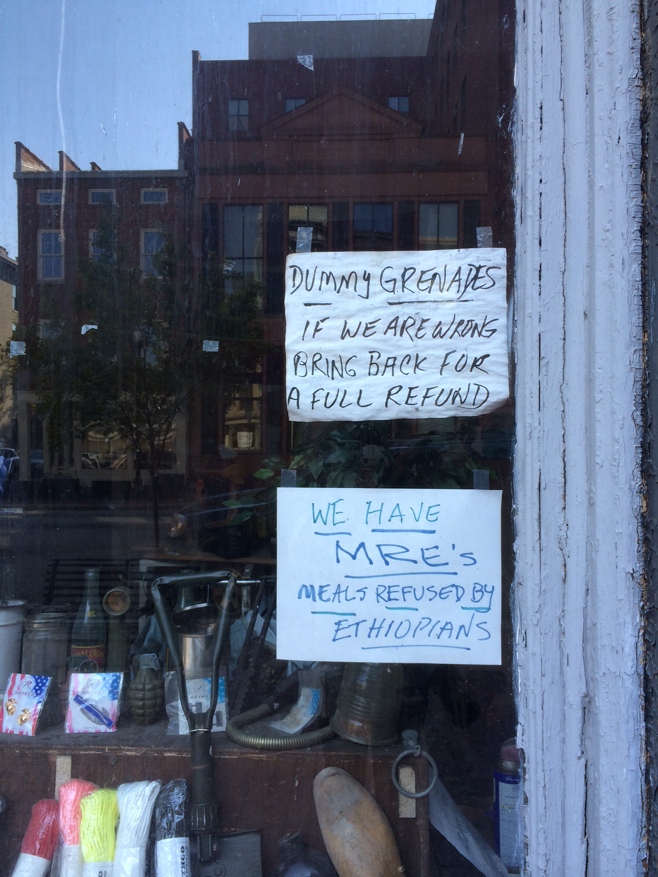 DUMMY GRENADES
IF WE ARE WRONG
BRING BACK FOR
A FULL REFUND
WE HAVE
MRE's
MEALS REFUSED BY
ETHIOPIANS